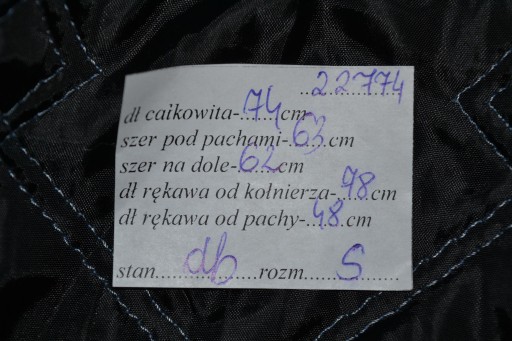 ..22774
dł całkowita-.74cm
szer pod pachami-.63.cm
szer na dole-.62cm
dł rękawa od kołnierza-.78cm
dł rękawa od pachy-.48.cm
stan......db......rozm......S......